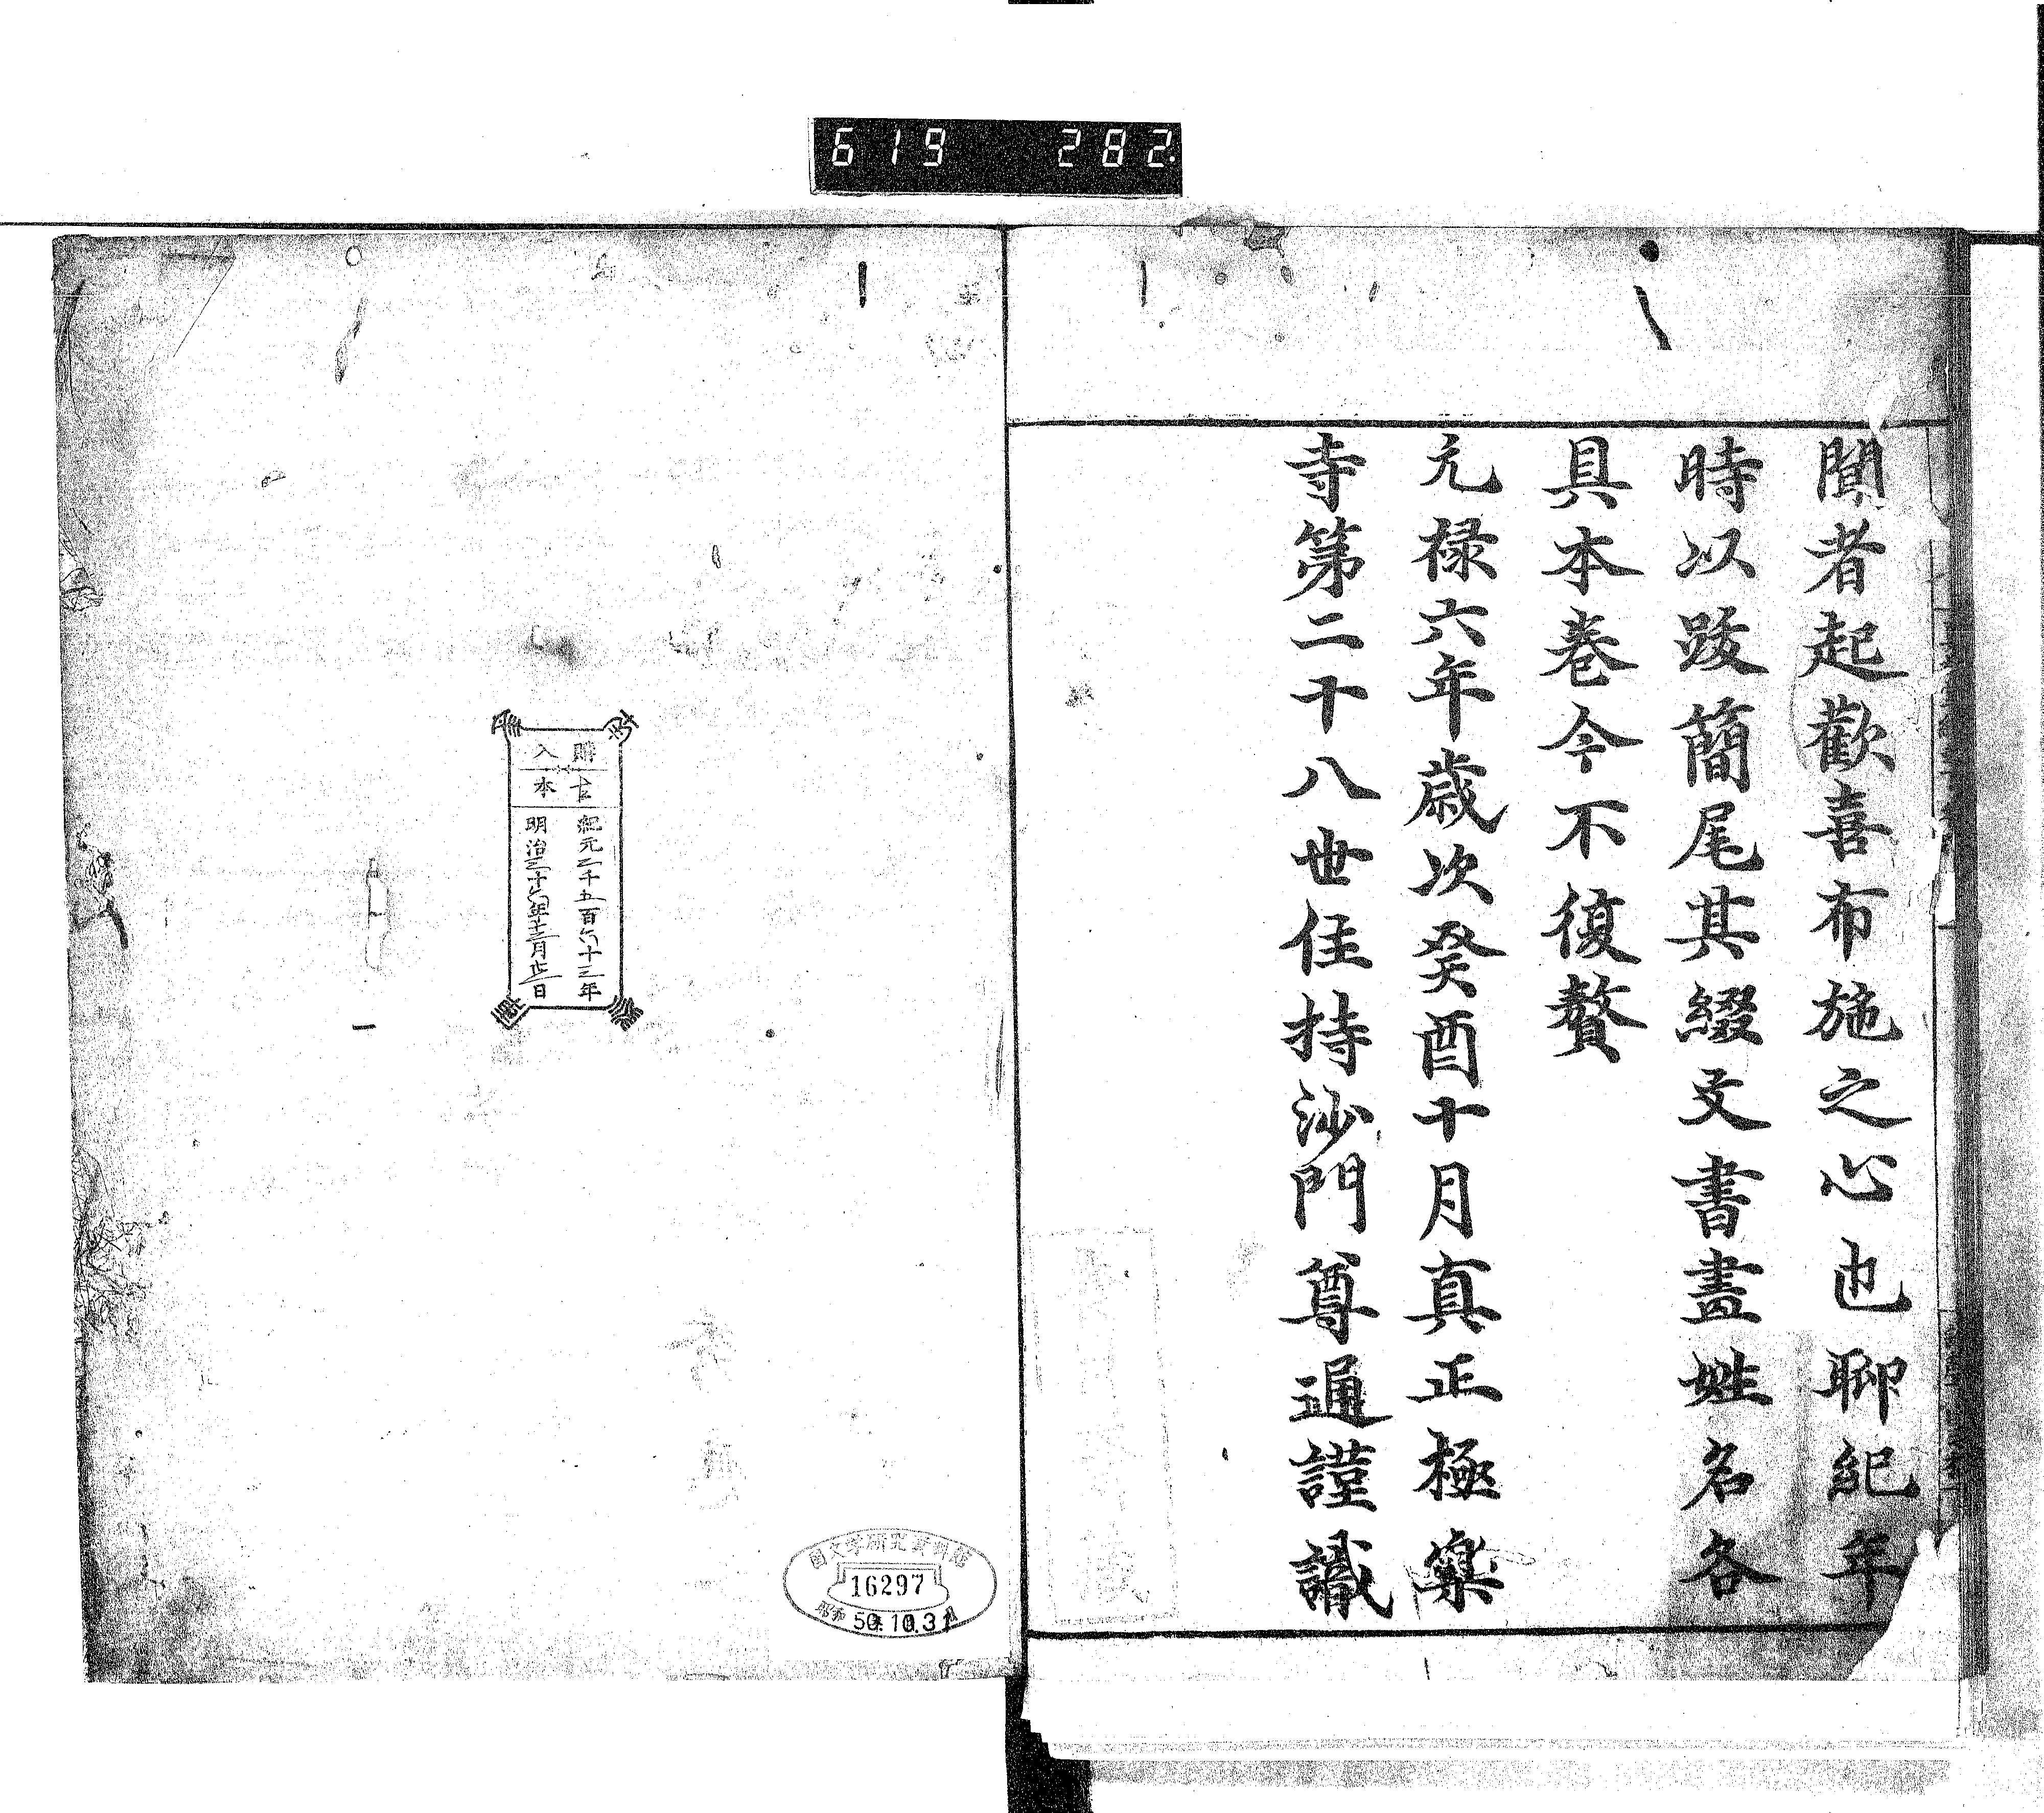 619 282
聞者起歡喜布施之心也聊紀年
時以跋簡尾其綴文書畫姓名各
具本巻今不復贅
元禄六年歳次癸酉十月真正極樂
寺第二十八世住持沙門尊通謹識
購入
古本
紀元二千五百六十三年
明治三十六年十二月 日
国文学研究資料館
16297
昭和 50.10.31